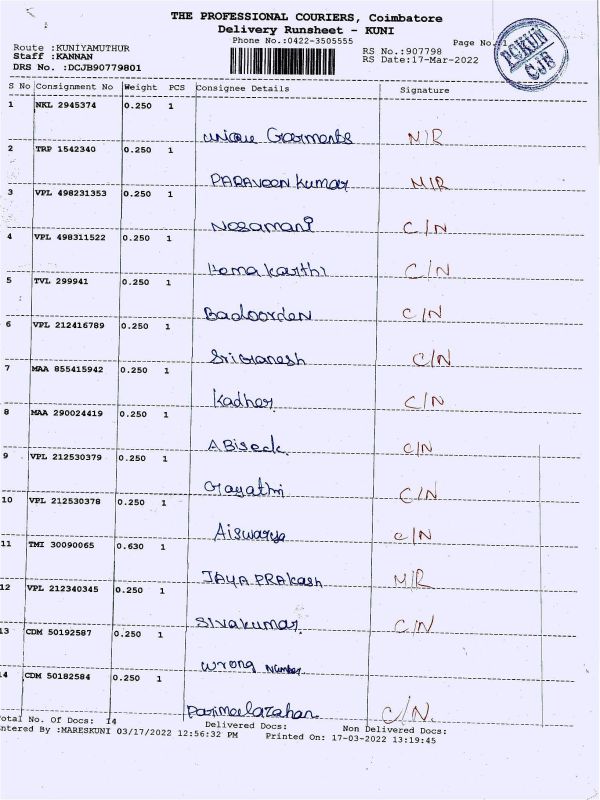 THE PROFESSIONAL COURIERS, Coimbatore
Delivery Runsheet - KUNI
Phone No.:0422-3505555
Page No.:1
Route :KUNIYAMUTHUR
Staff :KANNAN
DRS No. :DCJB90779801
RS No.:907798
RS Date:17-Mar-2022
PCKUN
CJB
S No Consignment No Weight PCS Consignee Details Signature
1 NKL 2945374 0.250 1
unique Garments N/R
2 TRP 1542340 0.250 1
PARAVEEN Kumar N/R
3 VPL 498231353 0.250 1
Nesamani C/N
4 VPL 498311522 0.250 1
Hemakarthi C/N
5 TVL 299941 0.250 1
Badoorden C/N
6 VPL 212416789 0.250 1
Sri Ganesh C/N
7 MAA 855415942 0.250 1
Kadher C/N
8 MAA 290024419 0.250 1
ABiseck C/N
9 VPL 212530379 0.250 1
Gayathri C/N
10 VPL 212530378 0.250 1
Aiswarya C/N
11 TMI 30090065 0.630 1
JAYA PRAkash N/R
12 VPL 212340345 0.250 1
Sivakumar C/N
13 CDM 50192587 0.250 1
Wrong Number
14 CDM 50182584 0.250 1
Parimeelazahan C/N.
Total No. Of Docs: 14 Delivered Docs: Non Delivered Docs:
ntered By :MARESKUNI 03/17/2022 12:56:32 PM Printed On: 17-03-2022 13:19:45